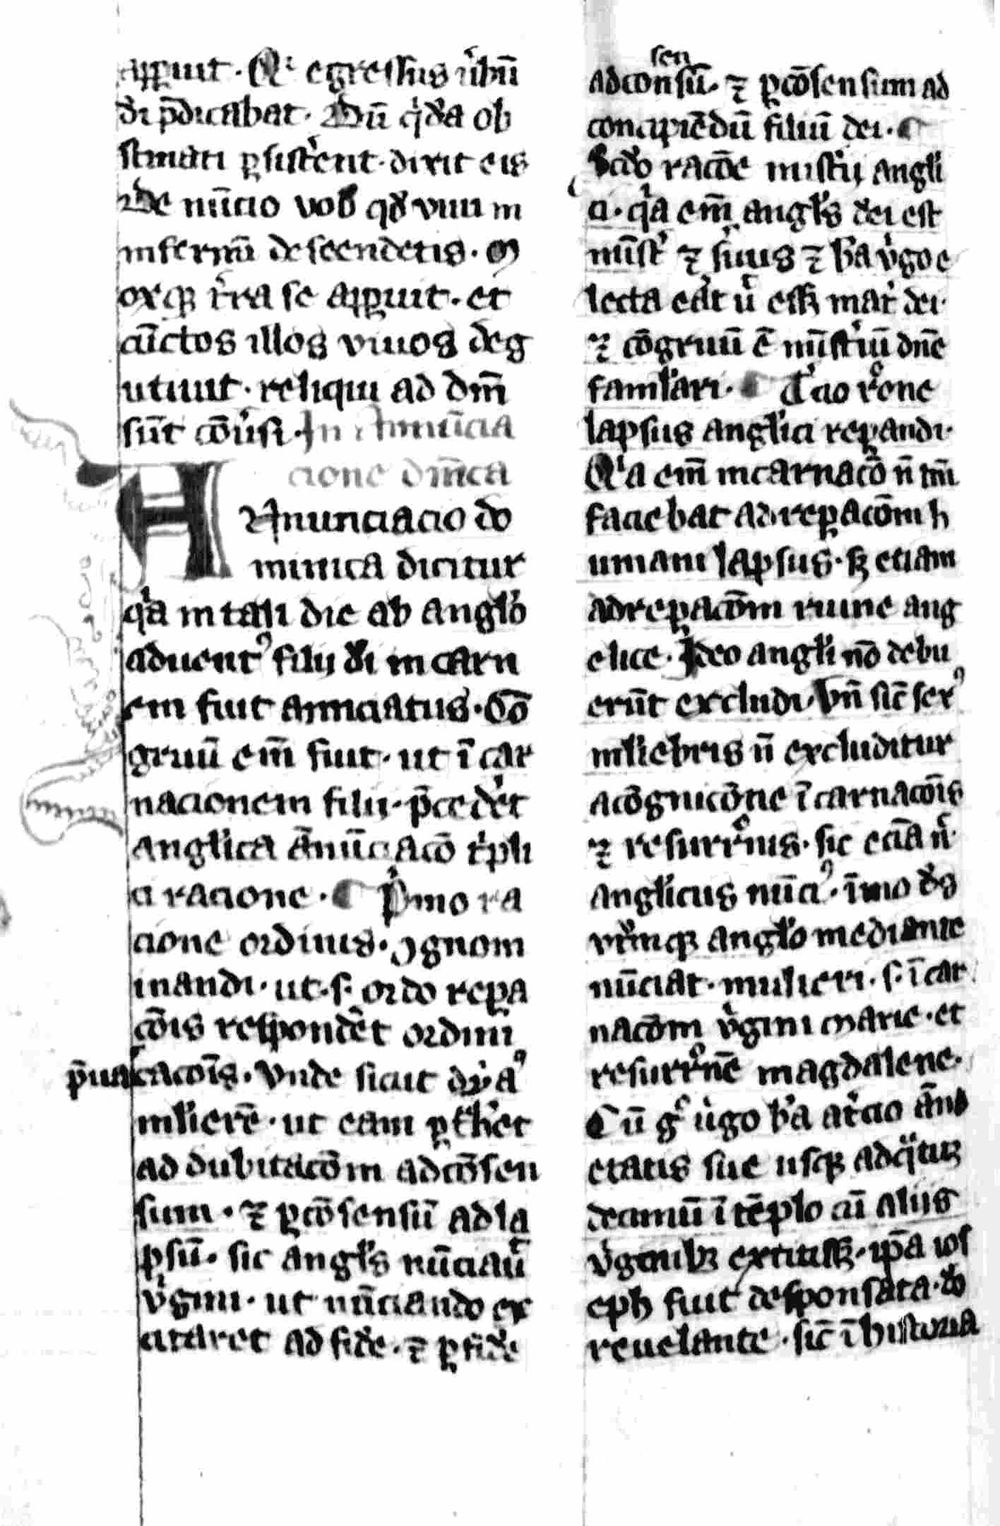 apparuit · Qi egressus ubū
dī p̄dicabat · Dū q̄da ob
stinati ꝑsistēent · dixit eis
De nūcio vob qd viui in
infernū descendetis · M
oxqꝫ t̄ra se apparuit · et
cūctos illos viuos deg
utiuit · reliqui ad dm̄
sūt cōūsi · In Annūcia
cione dnīca
Annunciacio do
minica dicitur
q̄a in tali die ab anglo
aduent⁹ filij dī in carn
em fuit annciatus · Cō
gruū em̄ fuit · ut ī car
nacionem filii · p̄cedēt
anglica ānūciacō t̄pli
ci racione · ¶ Pimo ra
cione ordinis · ꝯgnom
inandi · ut · s · ordo repa
cōis respondēt ordini
p̄uaricacōis · Vnde sicut dya⁹
mlierē · ut eam ꝑt̄het
ad dubitacōm ad cōsen
sum · ⁊ ꝑ cōsensū ad la
psū · sic angl̄s nūciaū
v̄gini · ut nūciando ex
citaret ad fidē · ⁊ ꝑ fidē
sen
ad consū · ⁊ ꝑ cōsensum ad
concipiēdū filiū dei · ¶
Scdo racōe mistīj angli
ci · q̄a em̄ angl̄s dei est
mīst̄ ⁊ s̄uus ⁊ b̄a v̄go e
lecta eāt ū essꝫ mat̄ dei ·
⁊ cōgruū ē mīstiū dn̄e
famlari · ¶ Tcio rōne
lapsus anglici repandi ·
Qia em̄ incarnacō n̄ tm̄
faciebat ad repacōm h
umani lapsus · sꝫ etiam
ad repacōm ruine ang
elice · Ideo angli nō debu
erūt excludi · Vn̄ sic̄ sex⁹
mliebris n̄ excluditur
a cōgnicōne īcarnacōis
⁊ resurrōnis · sic ecīa n̄
anglicus nūci⁹ · īmo ds
vt̄mqꝫ anglo mediante
nūciat · mulieri · s · īcar
nacōm v̄gini marie · et
resurrōnē magdalene ·
Cū g° v̄go b̄a at̄cio āno
etatis sue usqꝫ ad q̄tuꝫ
decimū ī tēplo cū aliis
v̄ginibꝫ extitissꝫ · ip̄a ios
eph fuit desponsata · do
reuelante · sic̄ ī historia